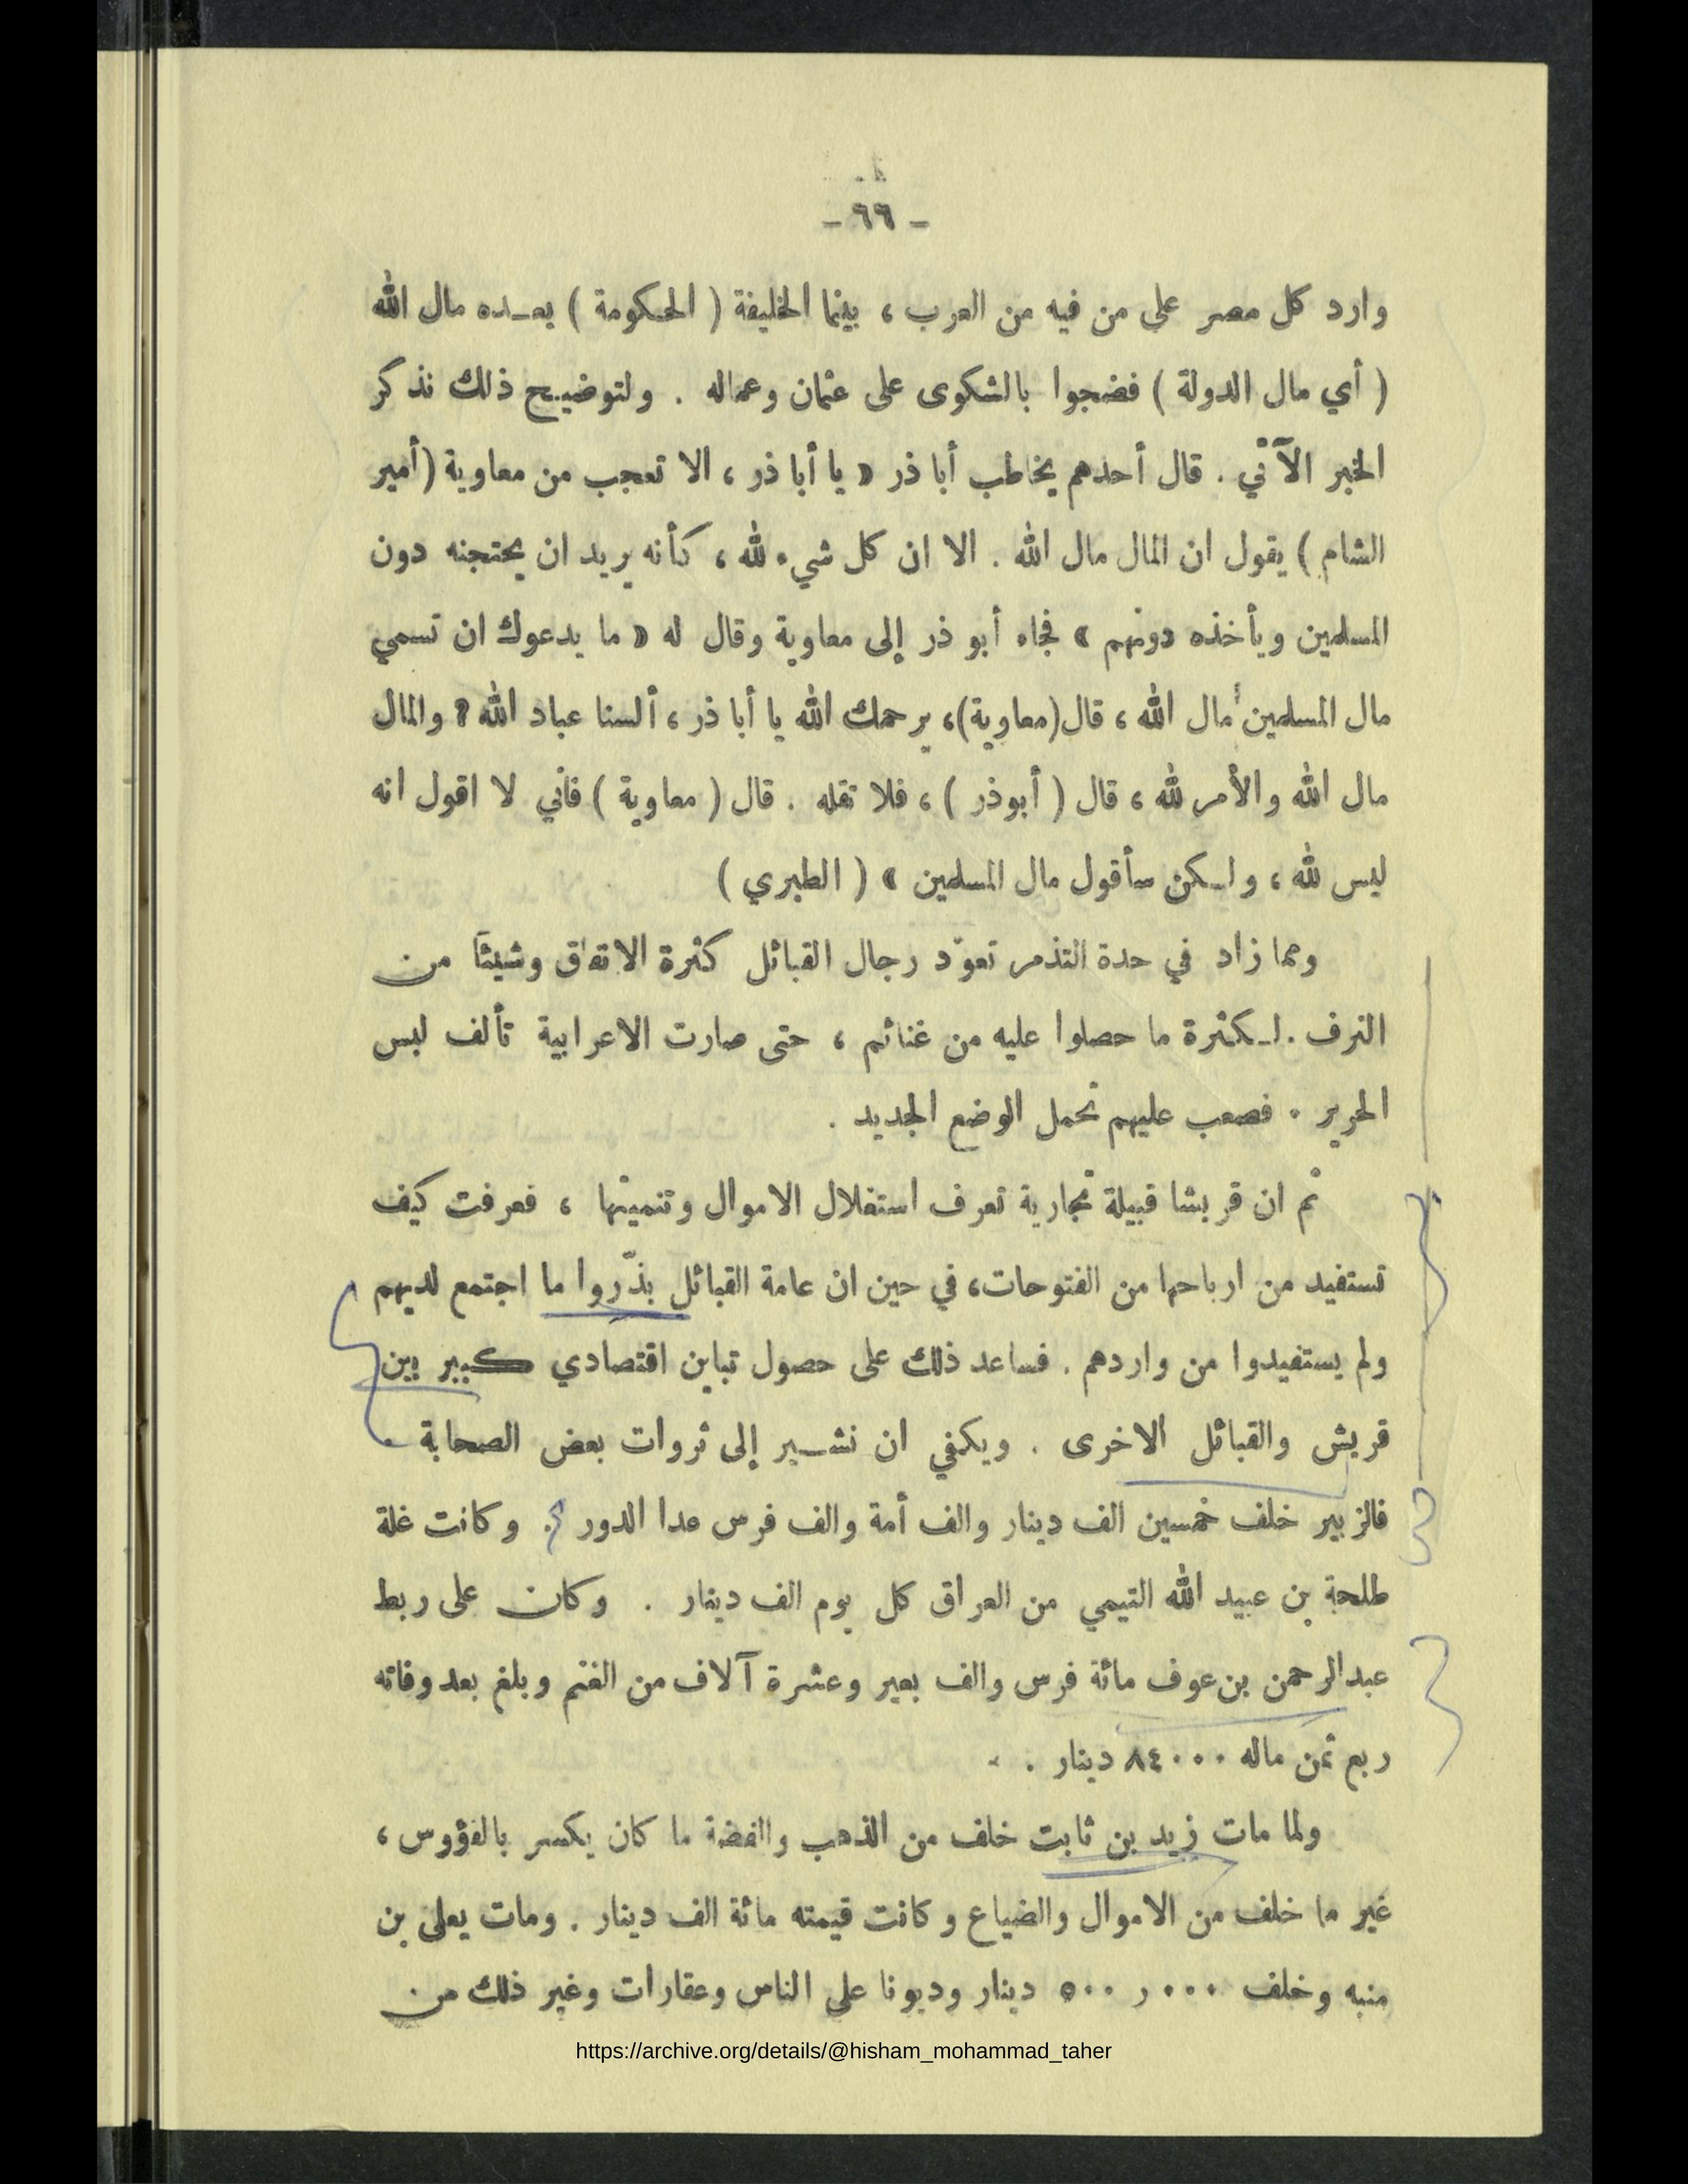 - ٦٦ -
وارد كل مصر على من فيه من العرب ، بينما الخليفة ( الحكومة ) يعـده مال الله
( أي مال الدولة ) فضجوا بالشكوى على عثمان وعماله . ولتوضيح ذلك نذكر
الخبر الآتي . قال أحدهم يخاطب أبا ذر « يا أبا ذر ، الا تعجب من معاوية (أمير
الشام ) يقول ان المال مال الله . الا ان كل شيء لله ، كأنه يريد ان يحتجنه دون
المسلمين ويأخذه دونهم » فجاء أبو ذر إلى معاوية وقال له « ما يدعوك ان تسمي
مال المسلمين مال الله ، قال (معاوية)، يرحمك الله يا أبا ذر ، ألسنا عباد الله ؟ والمال
مال الله والأمر لله ، قال ( أبوذر ) ، فلا تقله . قال ( معاوية ) فأني لا اقول انه
ليس لله ، ولـكن سأقول مال المسلمين » ( الطبري )
ومما زاد في حدة التذمر تعوّد رجال القبائل كثرة الانفاق وشيئاً من
الترف . لـكثرة ما حصلوا عليه من غنائم ، حتى صارت الاعرابية تألف لبس
الحرير . فصعب عليهم تحمل الوضع الجديد .
ثم ان قريشا قبيلة تجارية تعرف استغلال الاموال وتنميتها ، فعرفت كيف
تستفيد من ارباحها من الفتوحات، في حين ان عامة القبائل بذّروا ما اجتمع لديهم
ولم يستفيدوا من واردهم . فساعد ذلك على حصول تباين اقتصادي كبير بين
قريش والقبائل الاخرى . ويكفي ان نشـير إلى ثروات بعض الصحابة .
فالزبير خلف خمسين الف دينار والف أمة والف فرس عدا الدور . وكانت غلة
طلحة بن عبيد الله التيمي من العراق كل يوم الف دينار . وكان على ربط
عبدالرحمن بن عوف مائة فرس والف بعير وعشرة آلاف من الغنم وبلغ بعد وفاته
ربع ثمن ماله ٨٤٠٠٠ دينار .
ولما مات زيد بن ثابت خلف من الذهب والفضة ما كان يكسر بالفؤوس ،
غير ما خلف من الاموال والضياع وكانت قيمته مائة الف دينار . ومات يعلى بن
منبه وخلف ٥٠٠ر٠٠٠ دينار وديونا على الناس وعقارات وغير ذلك من
https://archive.org/details/@hisham_mohammad_taher